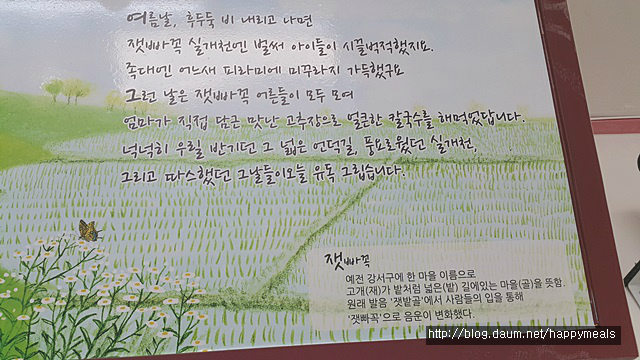 여름날, 후두둑 비 내리고 나면
잿빠꼭 실개천엔 벌써 아이들이 시끌벅적했지요.
족대엔 어느새 피라미에 미꾸라지 가득했구요
그런 날은 잿빠꼭 어른들이 모두 모여
엄마가 직접 담근 맛난 고추장으로 얼큰한 칼국수를 해먹었답니다.
넉넉히 우릴 반기던 그 넓은 언덕길, 풍요로웠던 실개천,
그리고 따스했던 그날들이오늘 유독 그립습니다.
잿빠꼭
예전 강서구에 한 마을 이름으로
고개(재)가 밭처럼 넓은(밭) 길에있는 마을(골)을 뜻함.
원래 발음 '잿밭골'에서 사람들의 입을 통해
'잿빠꼭'으로 음운이 변화했다.
http://blog.daum.net/happymeals